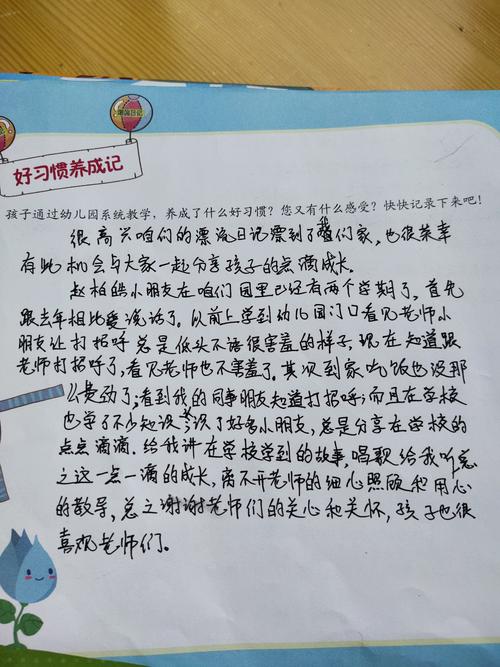 漂流日记
好习惯养成记
孩子通过幼儿园系统教学，养成了什么好习惯？您又有什么感受？快快记录下来吧！
很高兴咱们的漂流日记漂到了我们家，也很荣幸
有此机会与大家一起分享孩子的点滴成长。
赵柏皓小朋友在咱们园里已经有两个学期了，首先
跟去年相比爱说话了。以前上学到幼儿园门口看见老师小
朋友让打招呼总是低头不语很害羞的样子，现在知道跟
老师打招呼了，看见老师也不害羞了。其次到家吃饭也没那
么费劲了；看到我的同事朋友知道打招呼；而且在学校
也学了不少知识认识了好多小朋友，总是分享在学校的
点点滴滴。给我讲在学校学到的故事，唱歌给我听，总
之这一点一滴的成长，离不开老师的细心照顾和用心
的教导，总之谢谢老师们的关心和关怀，孩子也很
喜欢老师们。